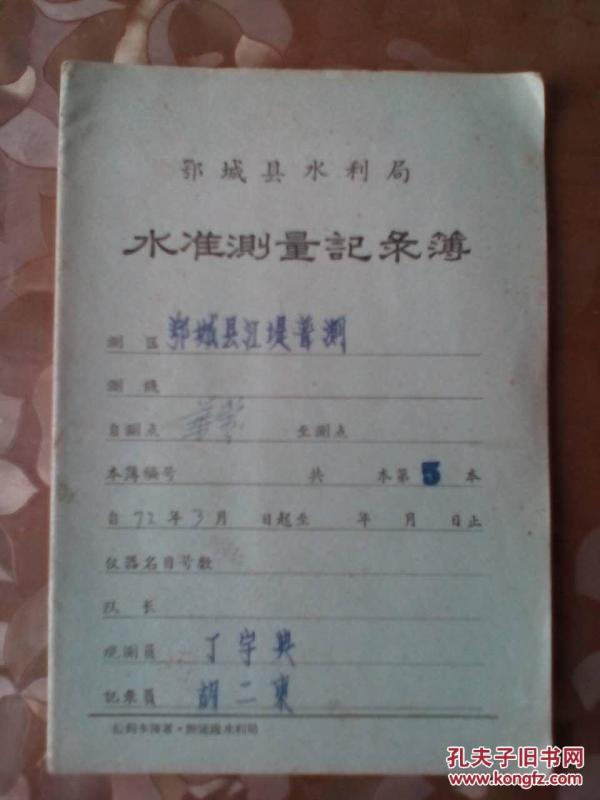 鄂城县水利局
水准測量記录簿
测区 鄂城县江堤普测
测线
自测点 至测点
本簿编号 共 本第 5 本
自 72 年 3 月 日起至 年 月 日止
仪器名目号数
队长
观测员 丁宇典
記录员 胡二東
孔夫子旧书网
www.kongfz.com